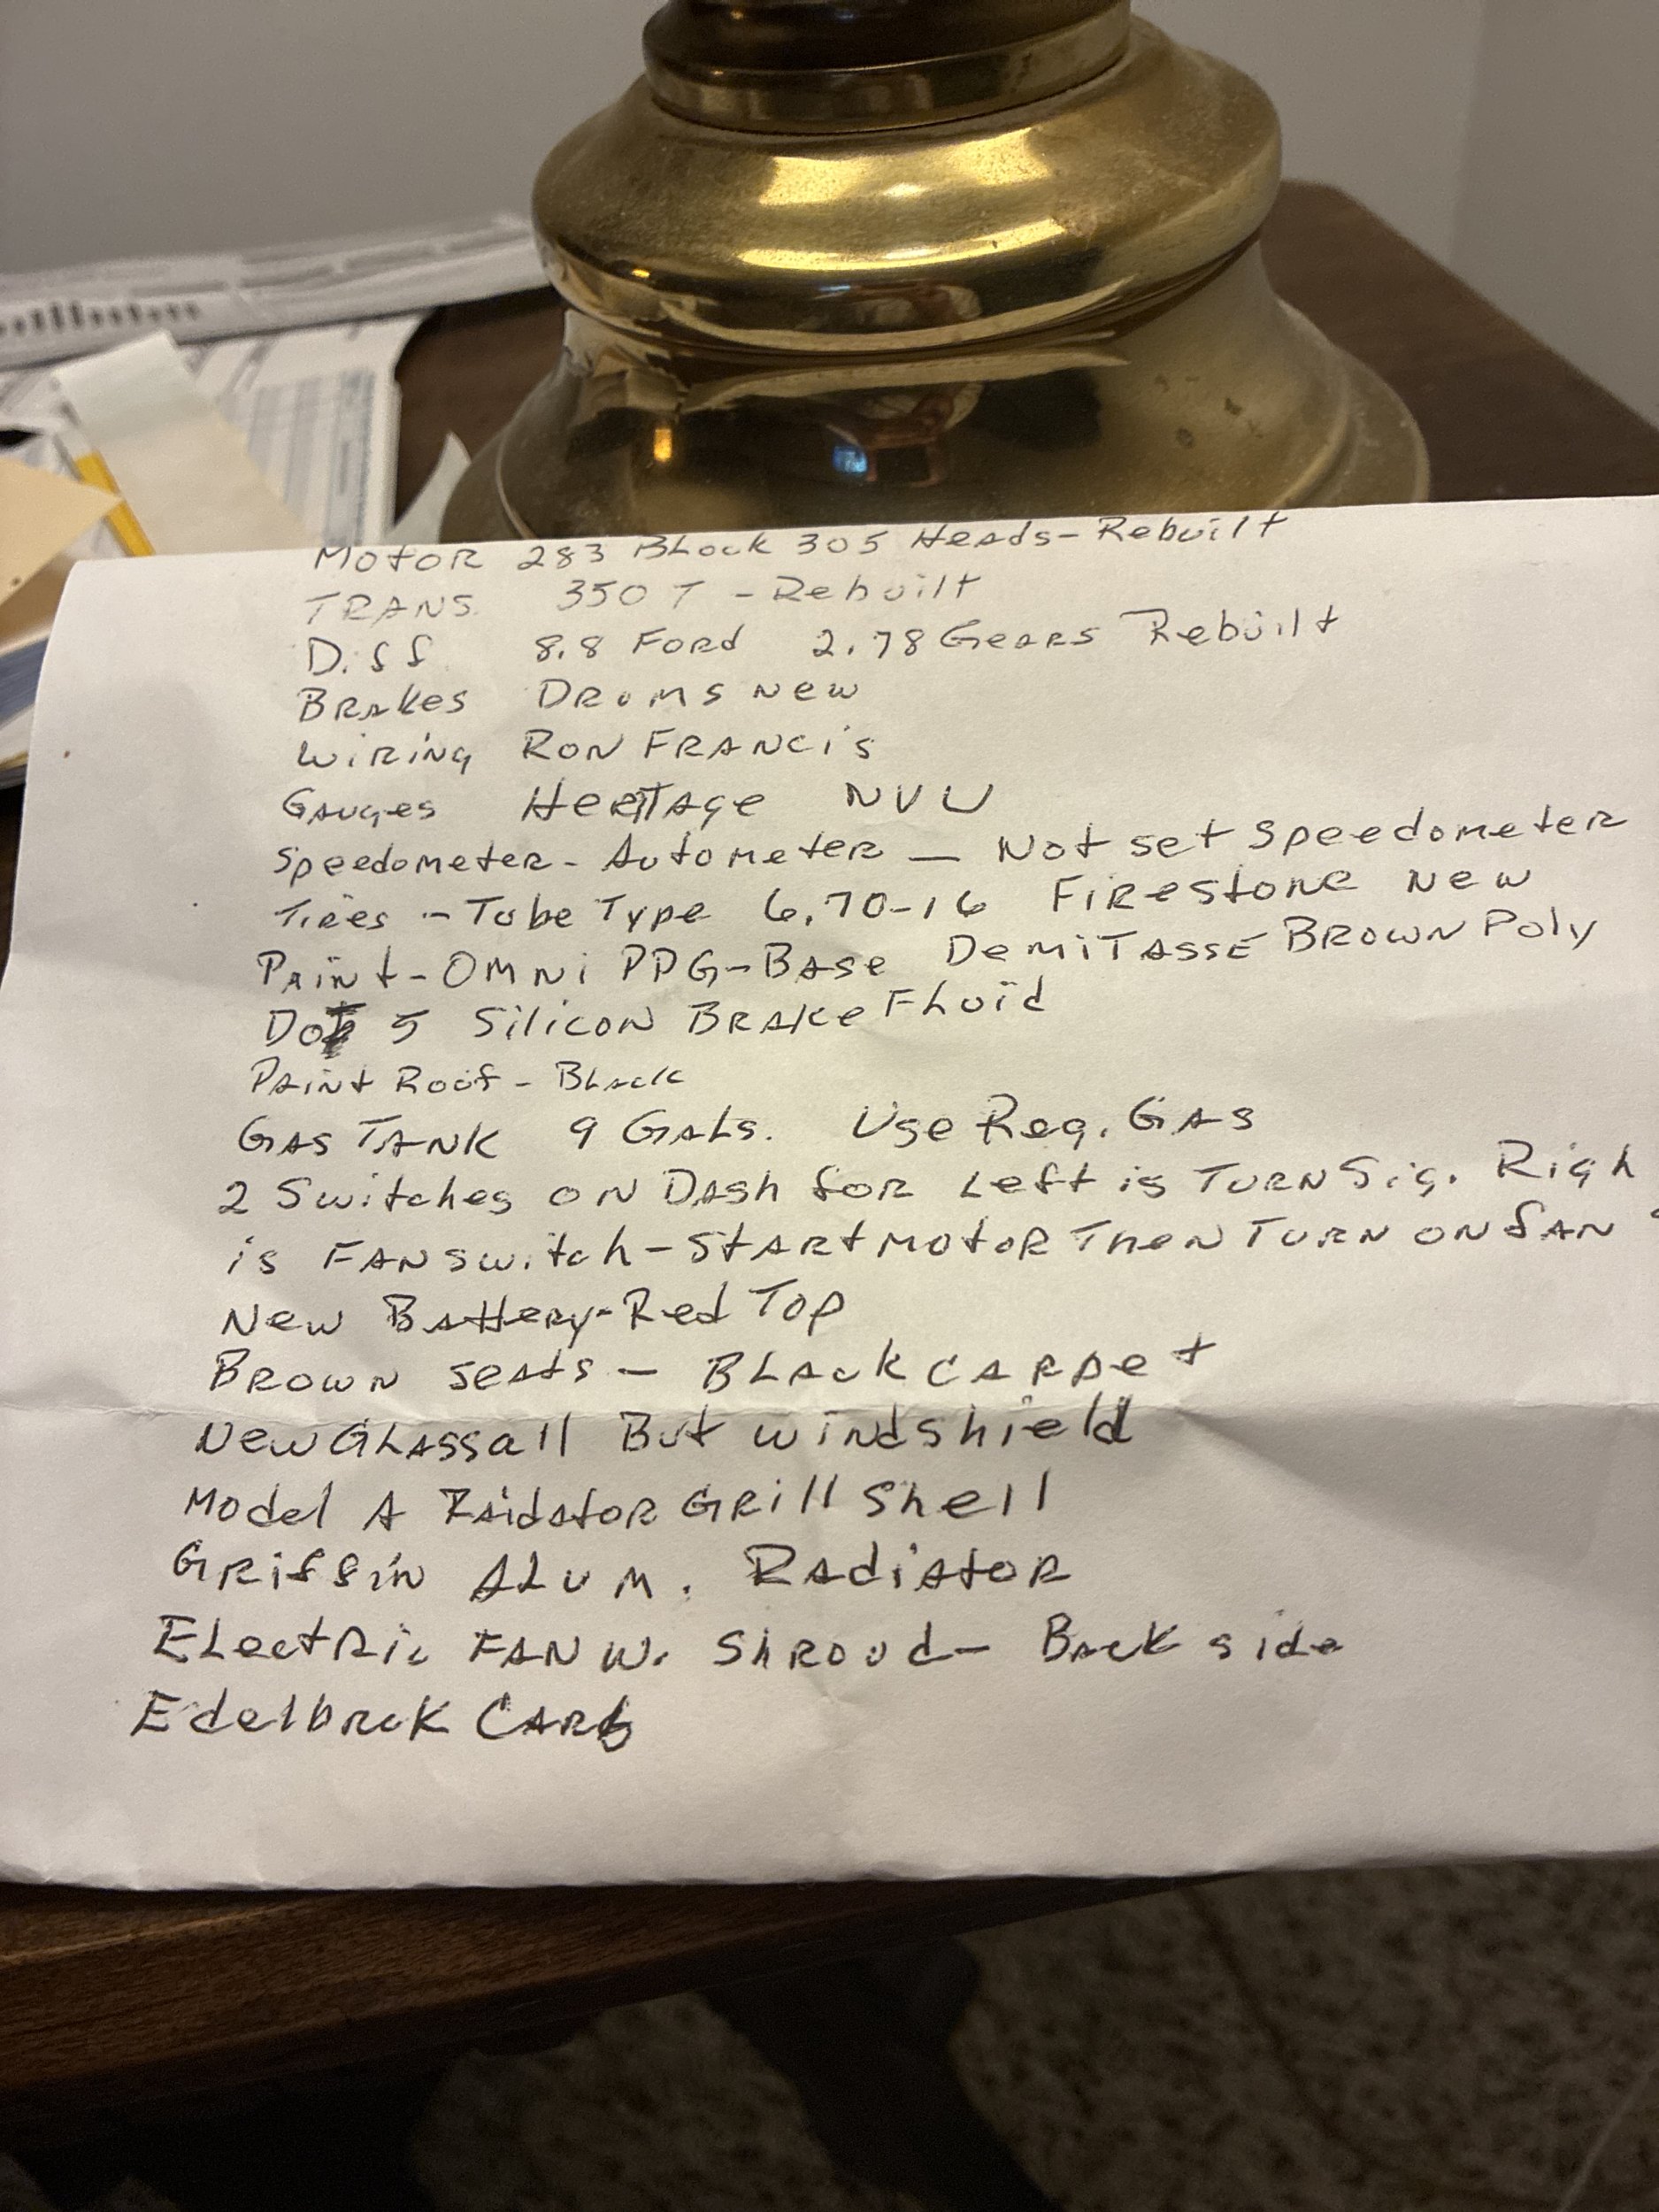 MOTOR 283 BLock 305 Heads-Rebuilt
TRANS. 350 T - Rebuilt
Diff 8.8 Ford 2.78 Gears Rebuilt
BRAKES DRUMS New
WiRiNg RON FRANCiS
GAuges HeRITAge NVU
Speedometer - Autometer — Not set Speedometer
Tires - Tube Type 6.70-16 FiRestone New
PAiNt-OMNi PPG-BASe DemiTASSE BROWN Poly
Dot 5 Silicon BRAKe FLuid
PAiNt Roof - BLack
GAS TANK 9 GALs. Use Reg. GAS
2 Switches ON DAsh foR Left is TURN Sig. Righ
is FAN Switch - StARt MotoR TheN TURN ON fAN
New BAtteRy-Red Top
BROWN SeAts - BLAck CARpet
New GLAss all But windshield
Model A RAidatoR GRill Shell
GRiffiN ALUM. RAdiAtoR
ELectRic FAN W. ShRoud - BAck side
Edelbrok CARb